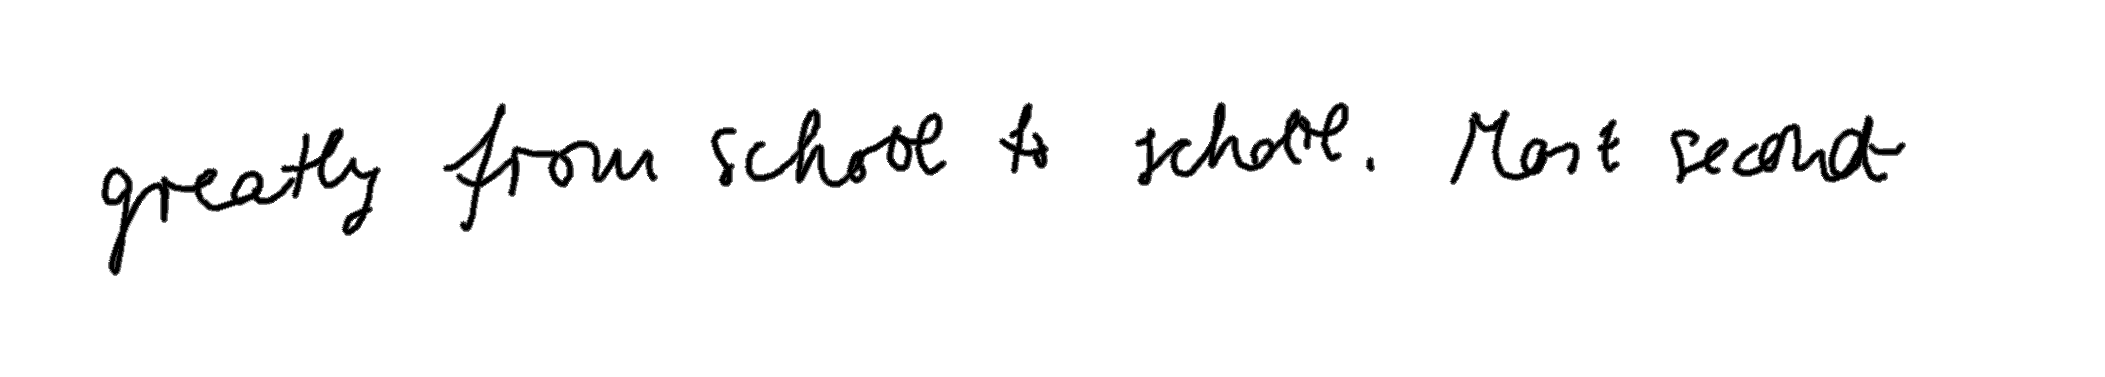 greatly from school to school. Most second-